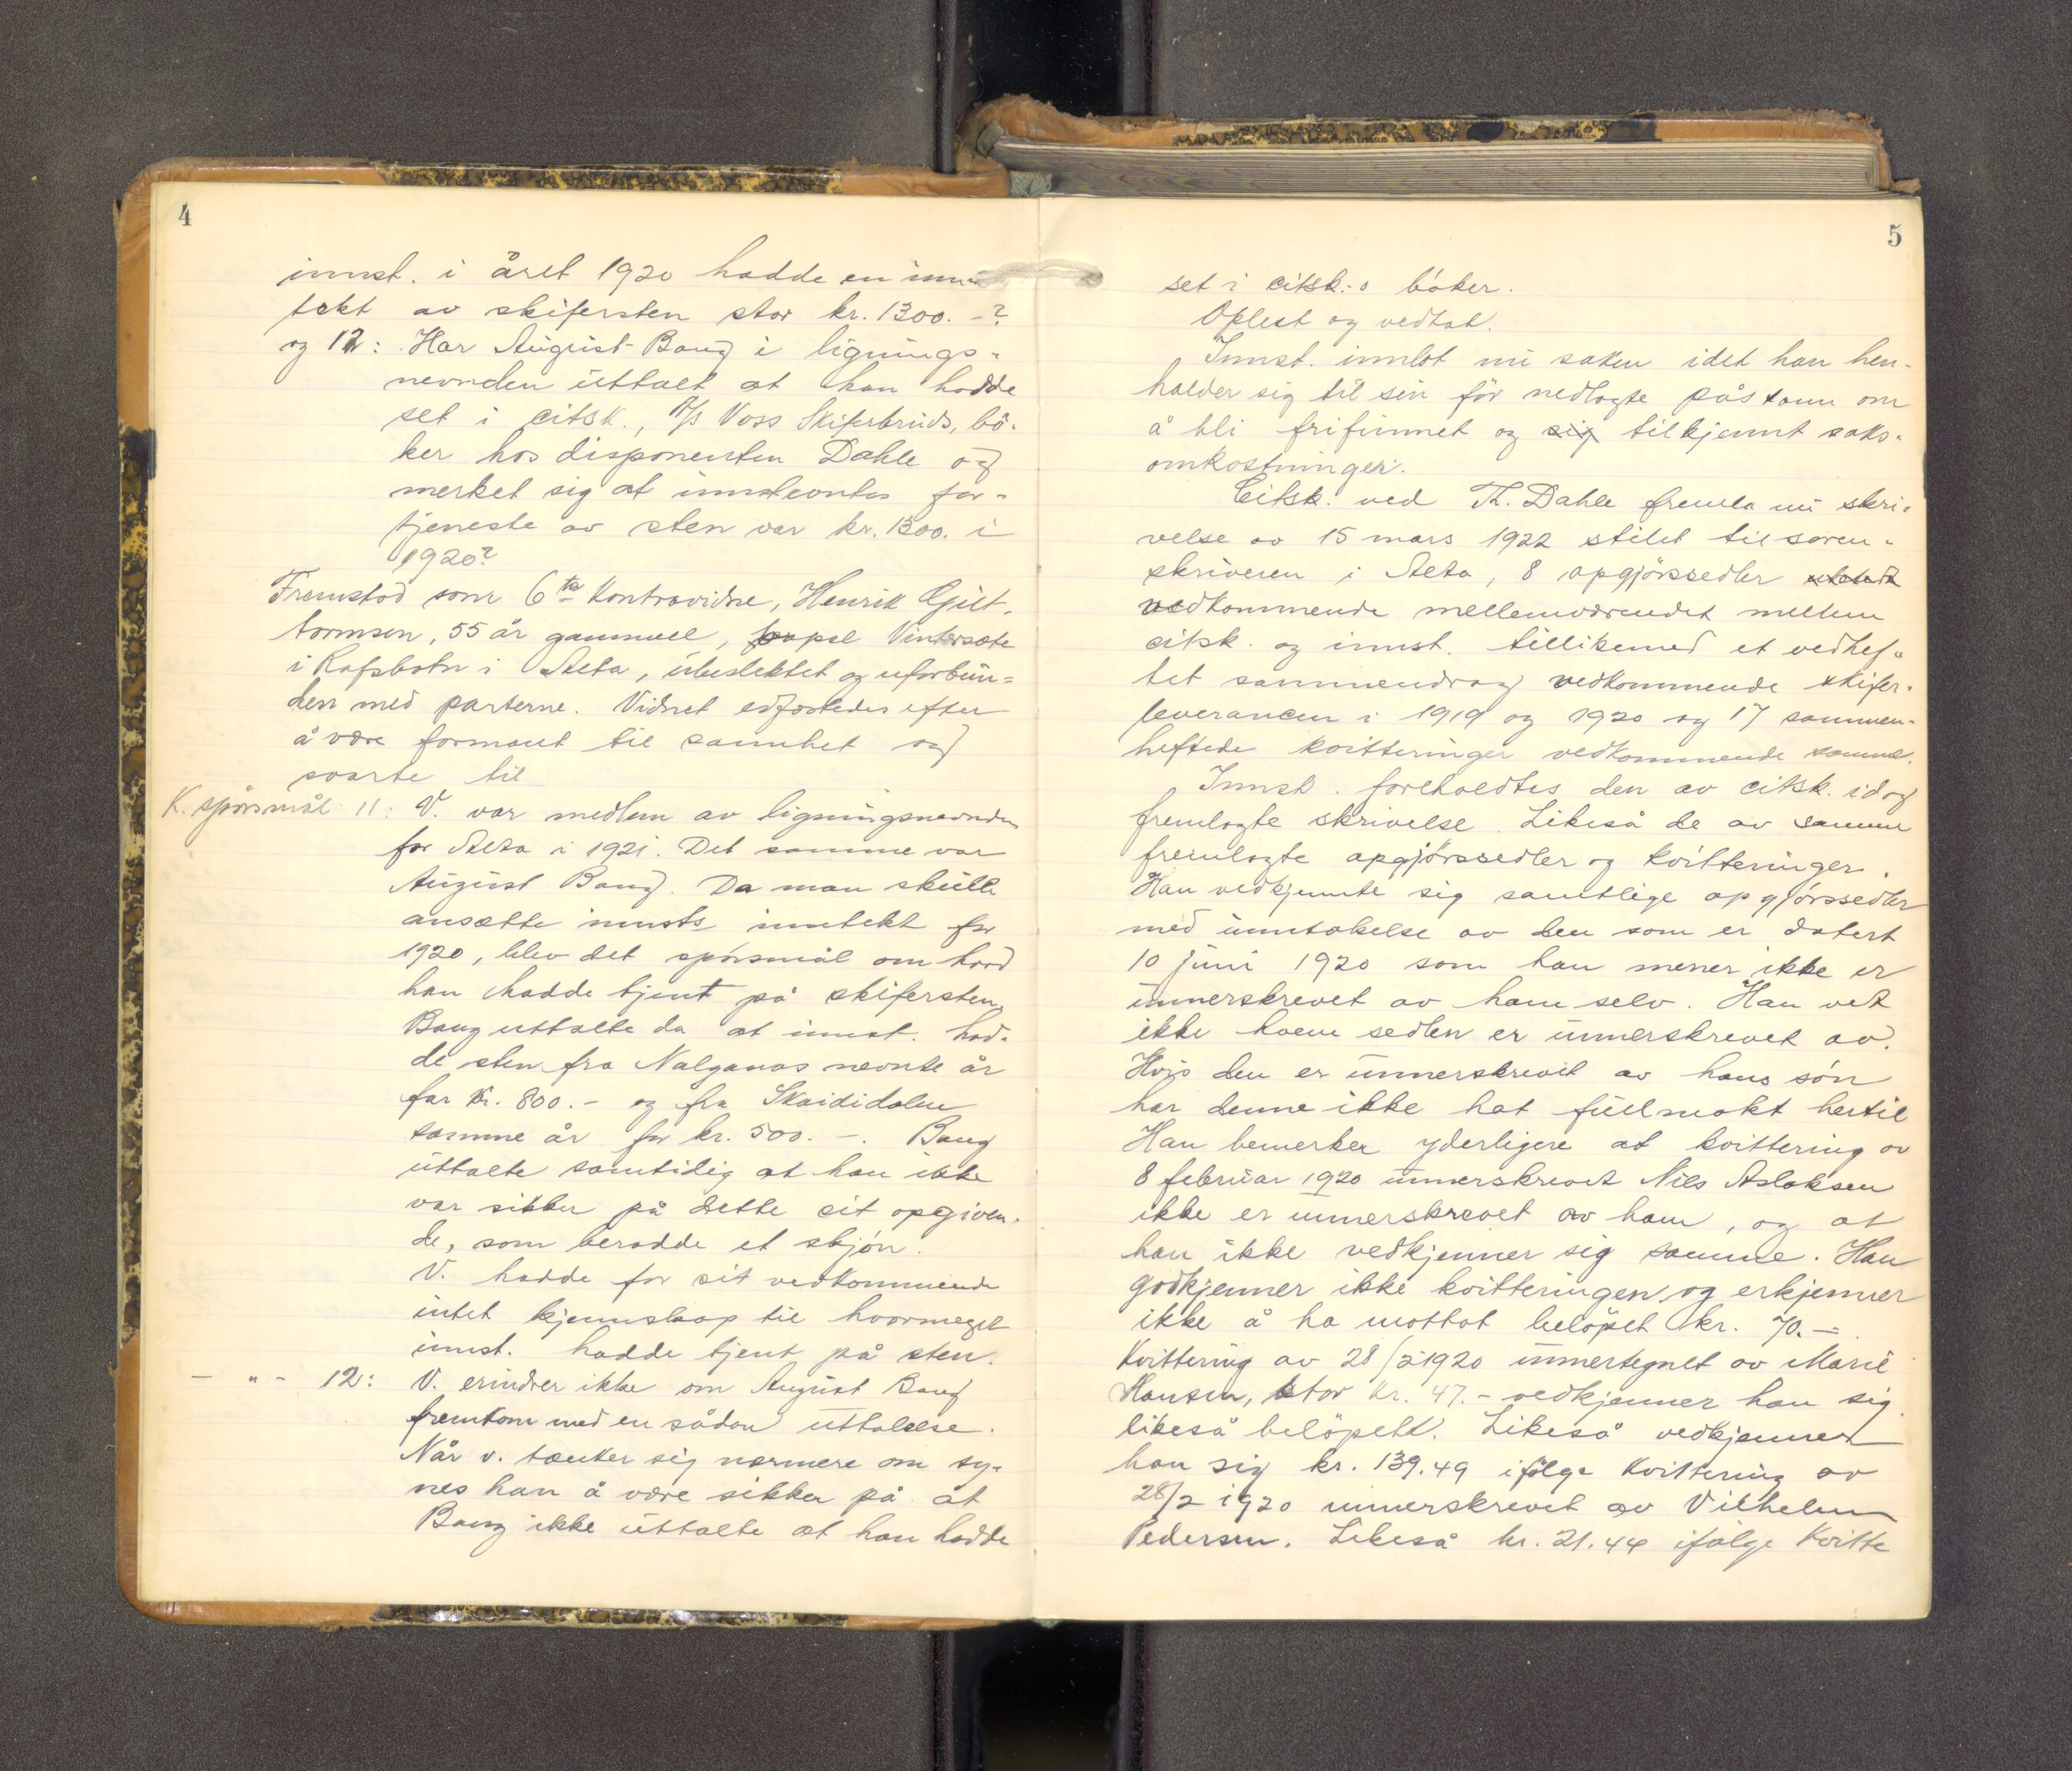 4
innst. i året 1920 hadde en inn-
tekt av skifersten stor kr. 1300.-?
og 12: Har August Bang i lignings-
nevnden uttalt at han hadde
set i citsk., A/S Voss Skiferbruds, bö-
ker hos disponenten Dahle og
merket sig at innstevntes for-
tjeneste av sten var kr. 1300. i
1920?
Fremstod som 6te Kontravidne, Henrik
tormsen, 55 år gammel, Vintersæte
i Rafsbotn i Alta, ubeslektet og uforbun-
den med parterne. Vidnet edfæstedes efter
å være formant til sannhet og
svarte til
K. spörsmål 11: V. var medlem av ligningsnevnden
for Alta i 1921. Det samme var
August Bang. Da man skulle
ansætte innsts inntekt for
1920, blev det spörsmål om hvad
han hadde tjent på skifersten.
Bang uttalte da at innst. had-
de sten fra Nalganas nevnte år
for kr. 800.- og fra Skaididalen
samme år for kr. 500.-. Bang
uttalte samtidig at han ikke
var sikker på dette sit opgiven-
de, som berodde et skjön.
V. hadde for sit vedkommende
intet kjennskap til hvormeget
innst. hadde tjent på sten.
- " - 12: V. erindrer ikke om August Bang
fremkom med en sådan uttalelse.
Når v. tænker sig nærmere om sy-
nes han å være sikker på at
Bang ikke uttalte at han hadde
5
set i citsk:s böker.
Oplest og vedtat.
Innst. innlot nu saken idet han hen-
holder sig til sin för nedlagte påstann om
å bli frifunnet og sig tilkjennt saks-
omkostninger.
Citsk. ved Th. Dahle fremla nu skri-
velse av 15 mars 1922 stilet til soren-
skriveren i Alta, 8 opgjörssedler
vedkommende mellemværendet mellem
citsk. og innst. tillikemed et vedhef-
tet sammendrag vedkommende skifer-
leverancen i 1919 og 1920 og 17 sammen-
heftede kvitteringer vedkommende samme.
Innst. foreholdtes den av citsk. idag
fremlagte skrivelse. Likeså de av samme
fremlagte opgjörssedler og kvitteringer.
Han vedkjennte sig samtlige opgjörssedler
med unntakelse av den som er datert
10 juni 1920 som han mener ikke er
unnerskrevet av ham selv. Han vet
ikke hvem sedlen er unnerskrevet av.
Hvis den er unnerskrevet av hans sön
har denne ikke hat fullmakt hertil
Han bemerker yderligere at kvittering av
8 februar 1920 unnerskrevet Nils Aslaksen
ikke er unnerskrevet av ham, og at
han ikke vedkjenner sig samme. Han
godkjenner ikke kvitteringen og erkjenner
ikke å ha mottat belöpet kr. 70.-
Kvittering av 28/2 1920 unnertegnet av Marie
Hansen, stor kr. 47.- vedkjenner han sig
likeså belöpet. Likeså vedkjenner
han sig kr. 139.49 ifölge kvittering av
28/2 1920 unnerskrevet av Vilhelm
Pedersen. Likeså kr. 21.44 ifölge kvitte